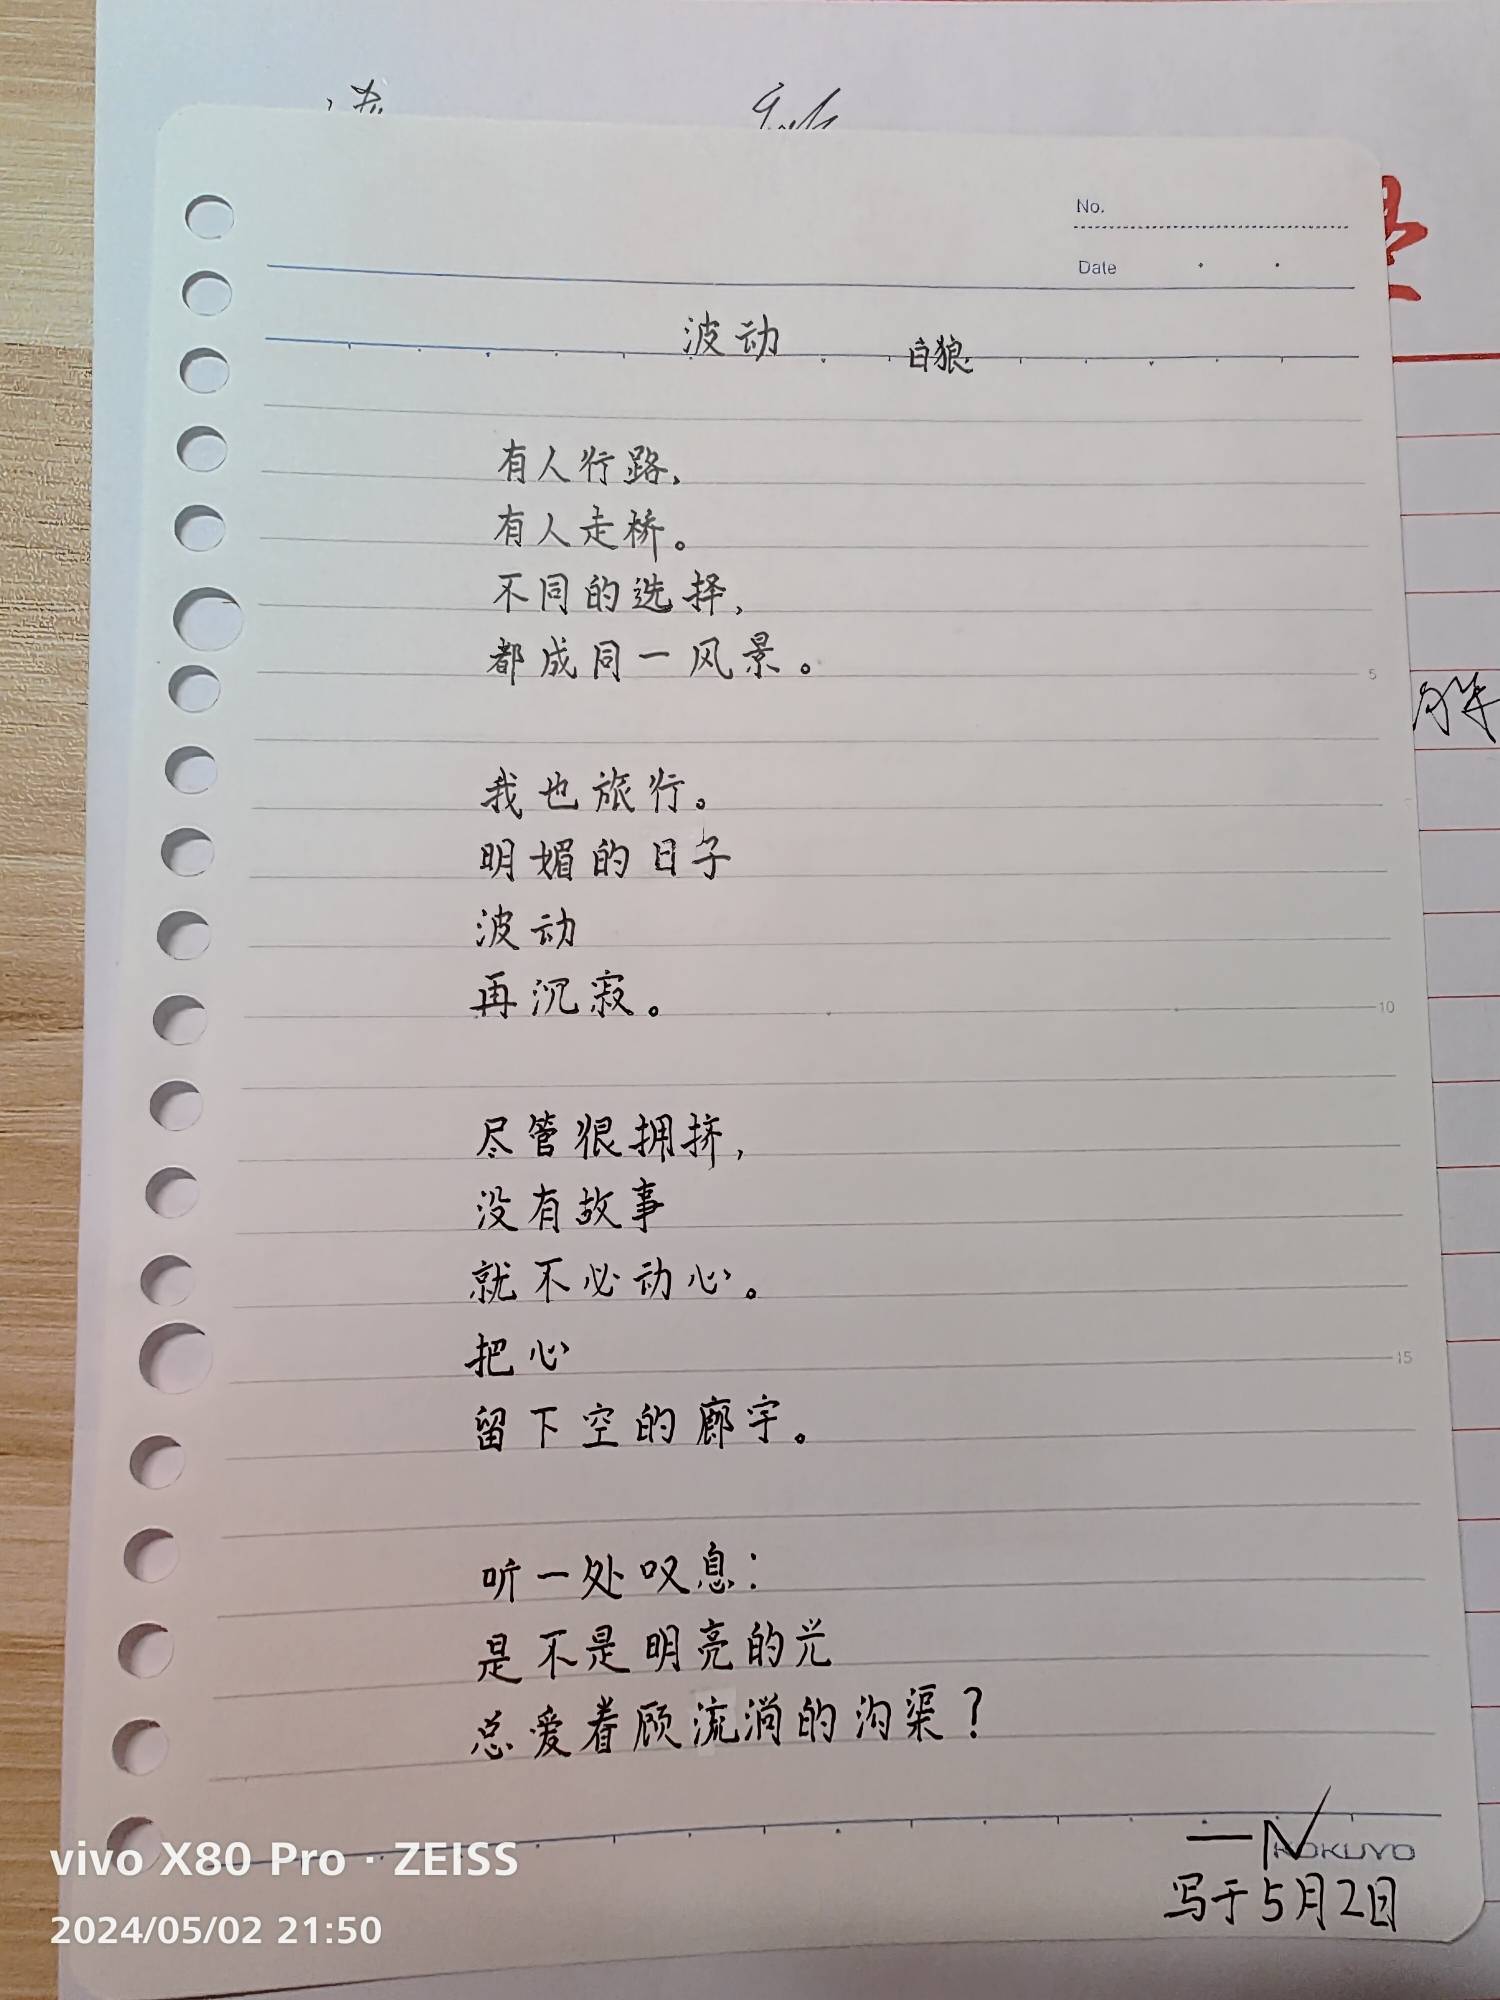 No.
Date
波动 白狼
有人行路,
有人走桥。
不同的选择,
都成同一风景。
5
我也旅行。
明媚的日子
波动
再沉寂。
10
尽管很拥挤,
没有故事
就不必动心。
把心
15
留下空的廊宇。
听一处叹息:
是不是明亮的光
总爱眷顾流淌的沟渠?
—N
KOKUYO
写于5月2日
vivo X80 Pro · ZEISS
2024/05/02 21:50